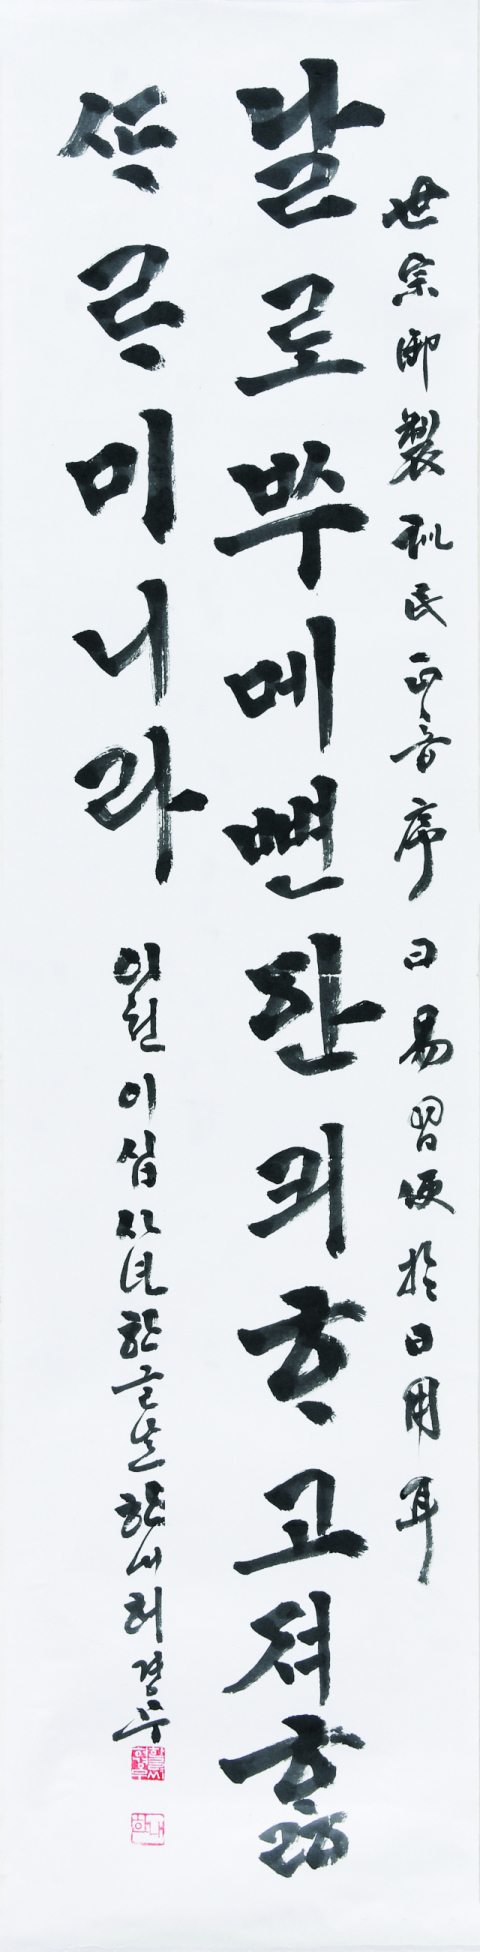 世宗御製訓民正音序曰易習便於日用耳
날로ᄡᅮ메뼌ᅙᅡᆫ킈ᄒᆞ고져ᄒᆞᇙ
ᄯᆞᄅᆞ미니라
이천이십사년한글날 허경무